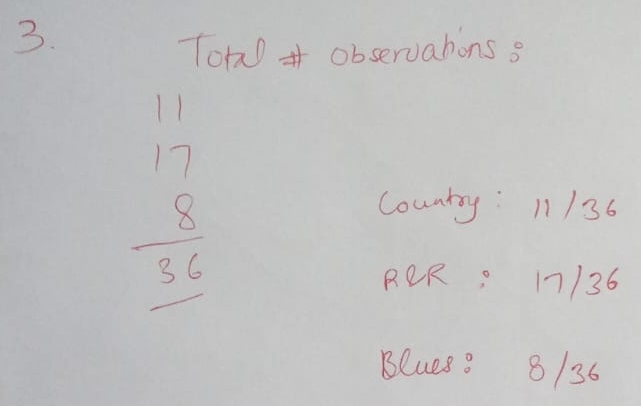 3.
Total # observations:
11
17
8
36
Country: 11/36
R&R: 17/36
Blues: 8/36